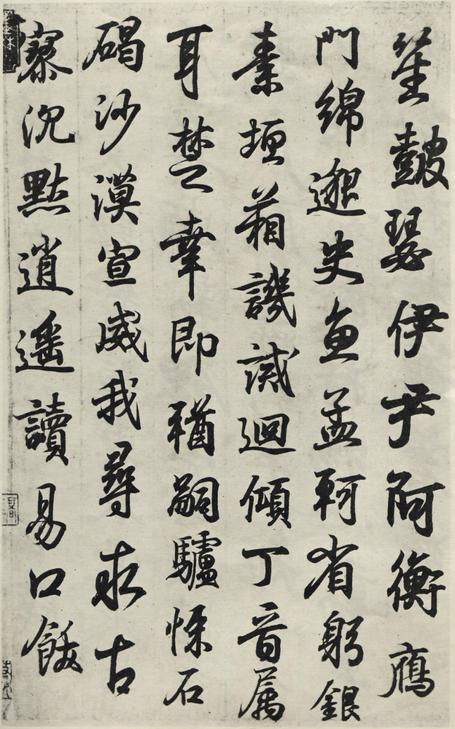 笙鼓瑟伊尹阿衡鴈
門綿邈史魚孟軻省躬銀
素垣葙譏誡迴傾丁音屬
耳楚幸即猶嗣驢悚石
碣沙漠宣威我尋求古
寮沉默逍遙讀易口